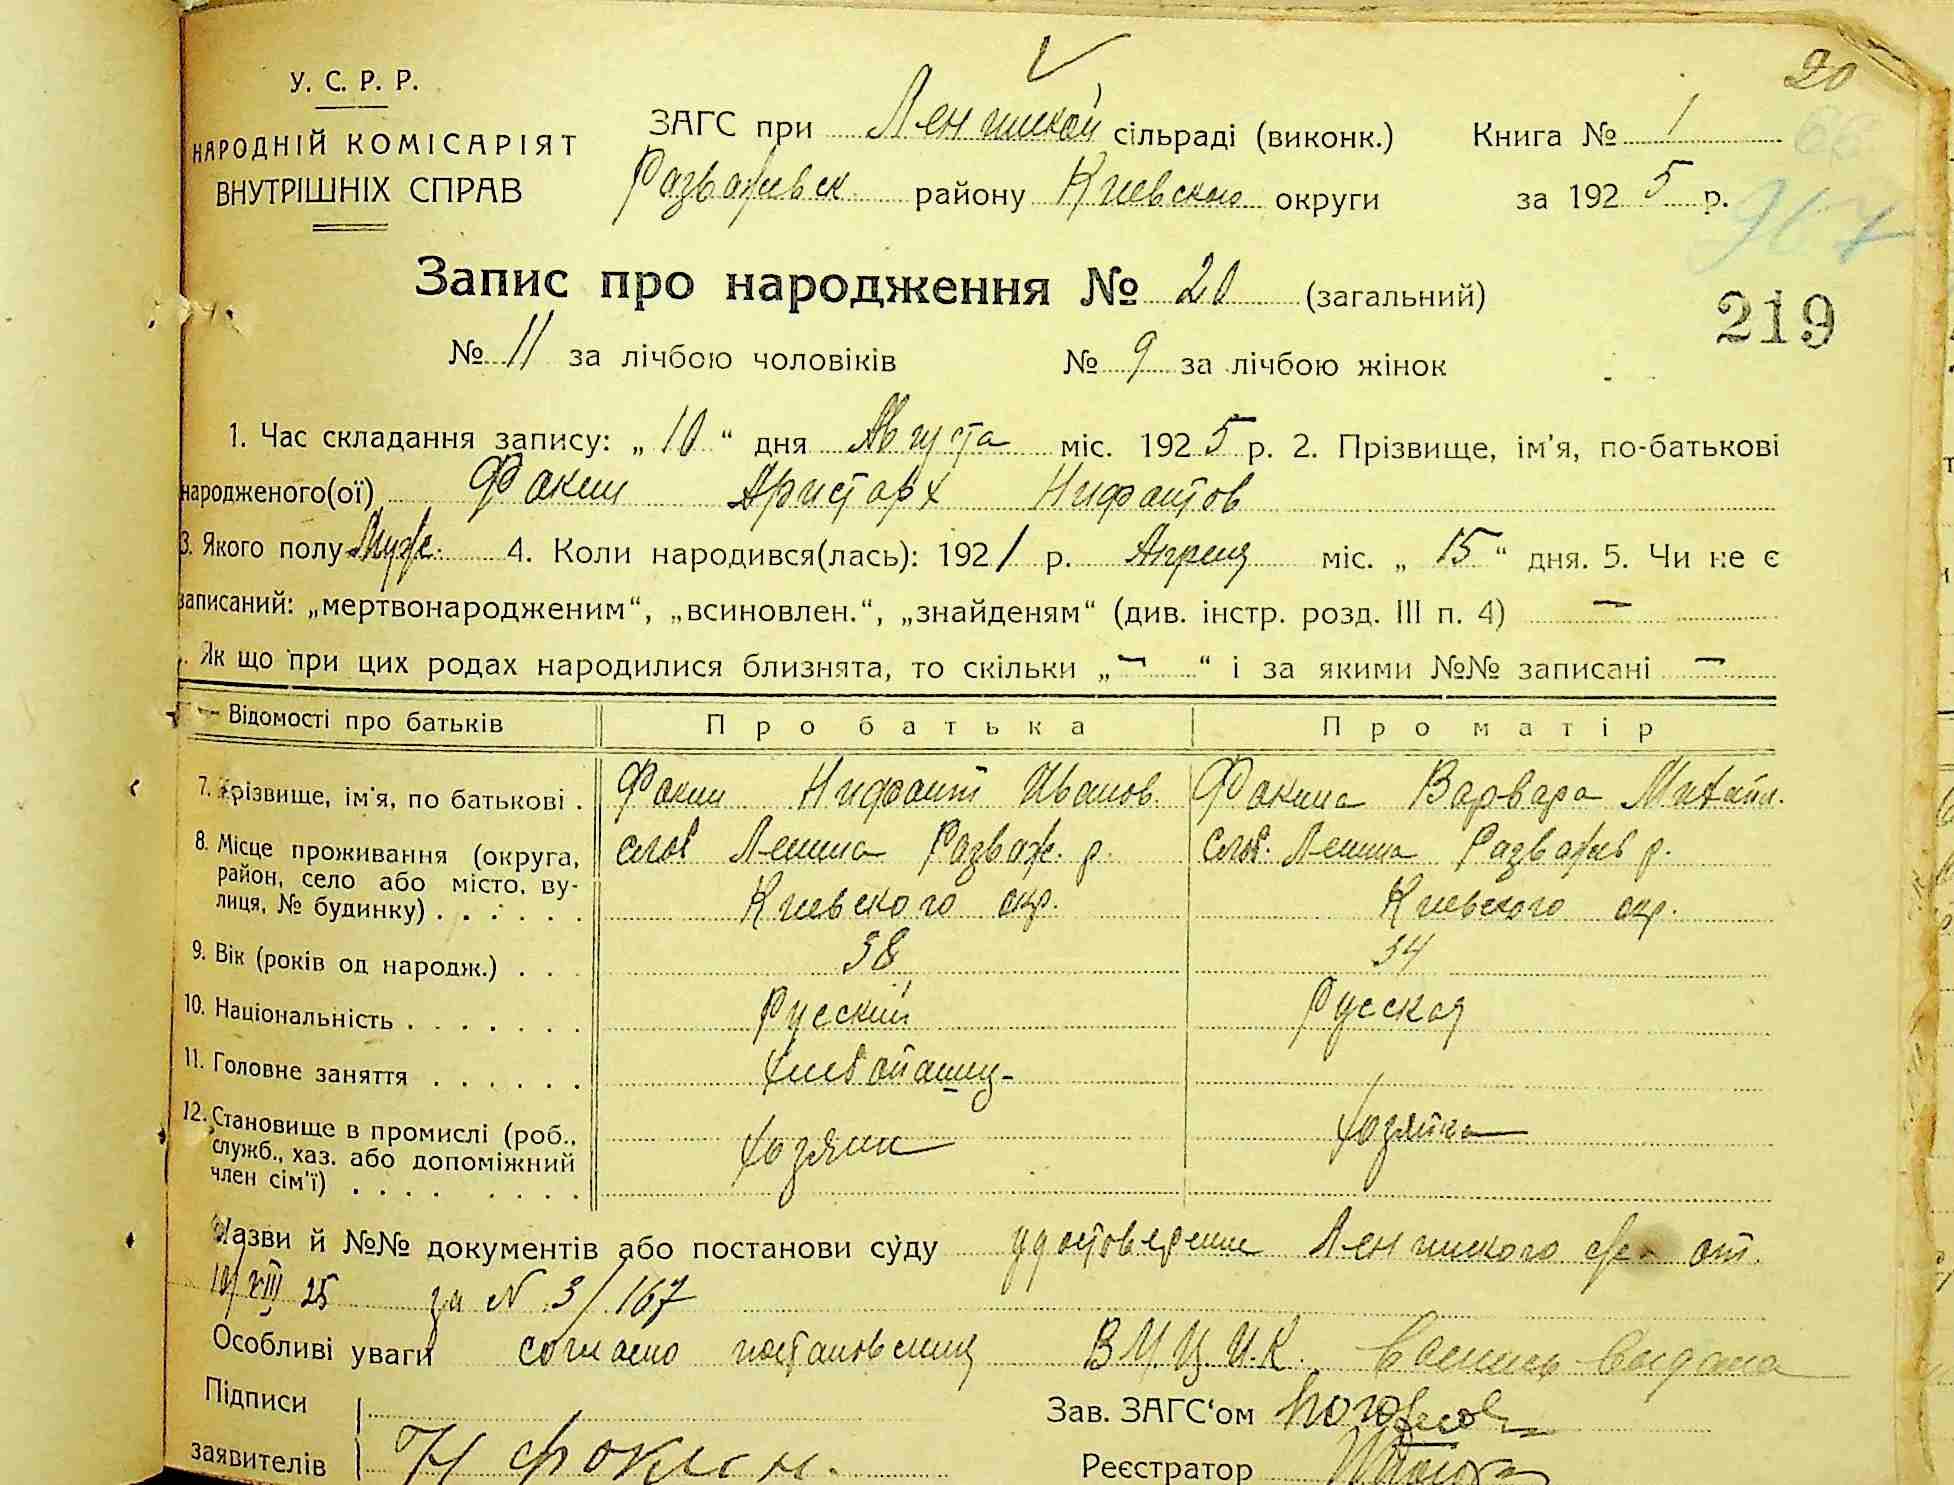 20
У. С. Р. Р.
НАРОДНІЙ КОМІСАРІЯТ
ВНУТРІШНІХ СПРАВ
ЗАГС при Ленинской сільраді (виконк.) Книга № 1
Розважевск. району Киевского округи за 1925 р.
967
Запис про народження № 20 (загальний)
219
№ 11 за лічбою чоловіків № 9 за лічбою жінок
1. Час складання запису: „10“ дня Августа міс. 1925 р. 2. Прізвище, ім'я, по-батькові
народженого(ої) Фокин Аристарх Нифонтов
3. Якого полу Муж. 4. Коли народився(лась): 1921 р. Апреля міс. „15“ дня. 5. Чи не є
записаний: „мертвонародженим“, „всиновлен.“, „знайденям“ (див. інстр. розд. III п. 4) —
. Як що при цих родах народилися близнята, то скільки „—“ і за якими №№ записані —
Відомості про батьків Про батька Про матір
7. Прізвище, ім'я, по батькові . Фокин Нифонт Иванов. Фокина Варвара Михайл.
8. Місце проживання (округа, слоб Ленина Розваж. р. слоб. Ленина Розважев р.
район, село або місто, ву-
лиця, № будинку) . . . . . . Киевского окр. Киевского окр.
9. Вік (років од народж.) . . . 38 34
10. Національність . . . . . . . Русский Русская
11. Головне заняття . . . . . . Хлебопашец-
12. Становище в промислі (роб., Хозяин Хозяйка
служб., хаз. або допоміжний
член сім'ї) . . . . . . . .
Назви й №№ документів або постанови суду удостоверение Ленинского от.
10/VIII 25 за № 3/167
Особливі уваги согласно постановления В.У.Ц.И.К. выдана
Підписи
Зав. ЗАГС'ом
заявителів Н Фокин.
Реєстратор